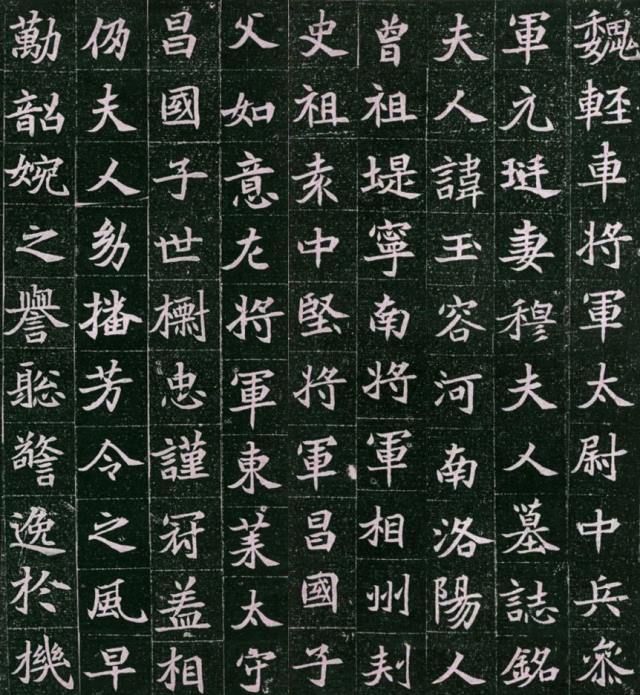 魏輕車將軍太尉中兵參
軍元珽妻穆夫人墓誌銘
夫人諱玉容河南洛陽人
曾祖堤寧南將軍相州刾
史祖袁中堅將軍昌國子
父如意左將軍東萊太守
昌國子世樹忠謹冠蓋相
仍夫人幼播芳令之風早
勱韶婉之譽聡警逸於機